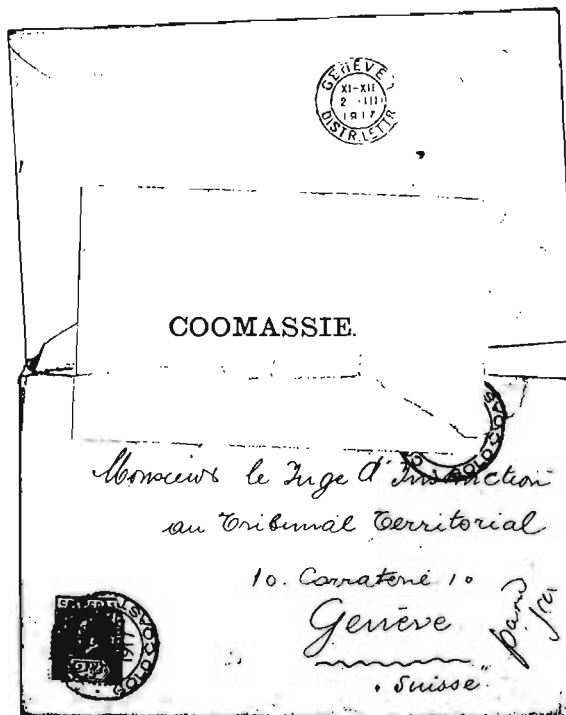 GENÈVE 1
XI-XII
2 III
1917
DISTR. LETTR
COOMASSIE.
GOLD COAST
Monsieur le Juge d'Instruction
au Tribunal Territorial
10. Corraterie 10
Genève
Suisse.
GOLD COAST